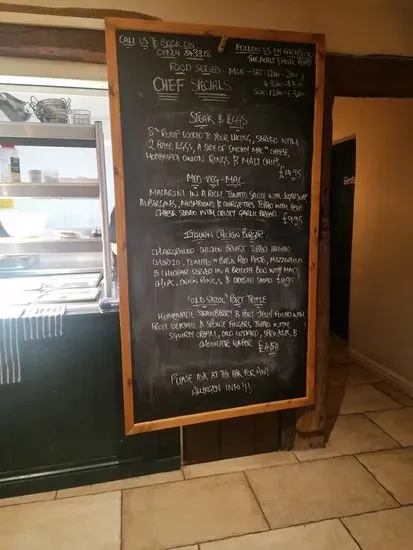 CALL US TO BOOK ON
01924 848315
FOLLOW US ON FACEBOOK
THE
FOOD SERVED - MON - SAT: 12PM - 2PM &
SUN: 12PM -
CHEF SPECIALS
STEAK & EGGS
8oz RUMP COOKED TO YOUR LIKING, SERVED WITH
2 FRIED EGGS, A SIDE OF SMOKEY MAC N CHEESE,
HOMEMADE ONION RINGS & MALT CHIPS
£14.95
MED-VEG-MAC
MACARONI IN A RICH TOMATO SAUCE WITH
AUBERGINES, MUSHROOMS & COURGETTES TOPPED WITH FETA
CHEESE SERVED WITH CRISPY GARLIC BREAD £9.95
ITALIAN CHICKEN BURGER
CHARGRILLED CHICKEN BREAST TOPPED ITALIAN
CHORIZO, TOMATO & BASIL RED PESTO, MOZZARELLA
& CHEDDAR SERVED IN A BRIOCHE BUN WITH MALT
CHIPS, ONION RINGS & DRESSED SALAD £11.95
'OLD SKOOL' PORT TRIFLE
HOMEMADE STRAWBERRY & PORT JELLY FILLED WITH
FRUIT COCKTAIL & SPONGE FINGERS TOPPED WITH
SQUIRTY CREAM, COLD CUSTARD, SPRINKLES &
CHOCOLATE WAFER £4.50
PLEASE ASK AT THE BAR FOR ANY
ALLERGEN INFO!!!
Gents